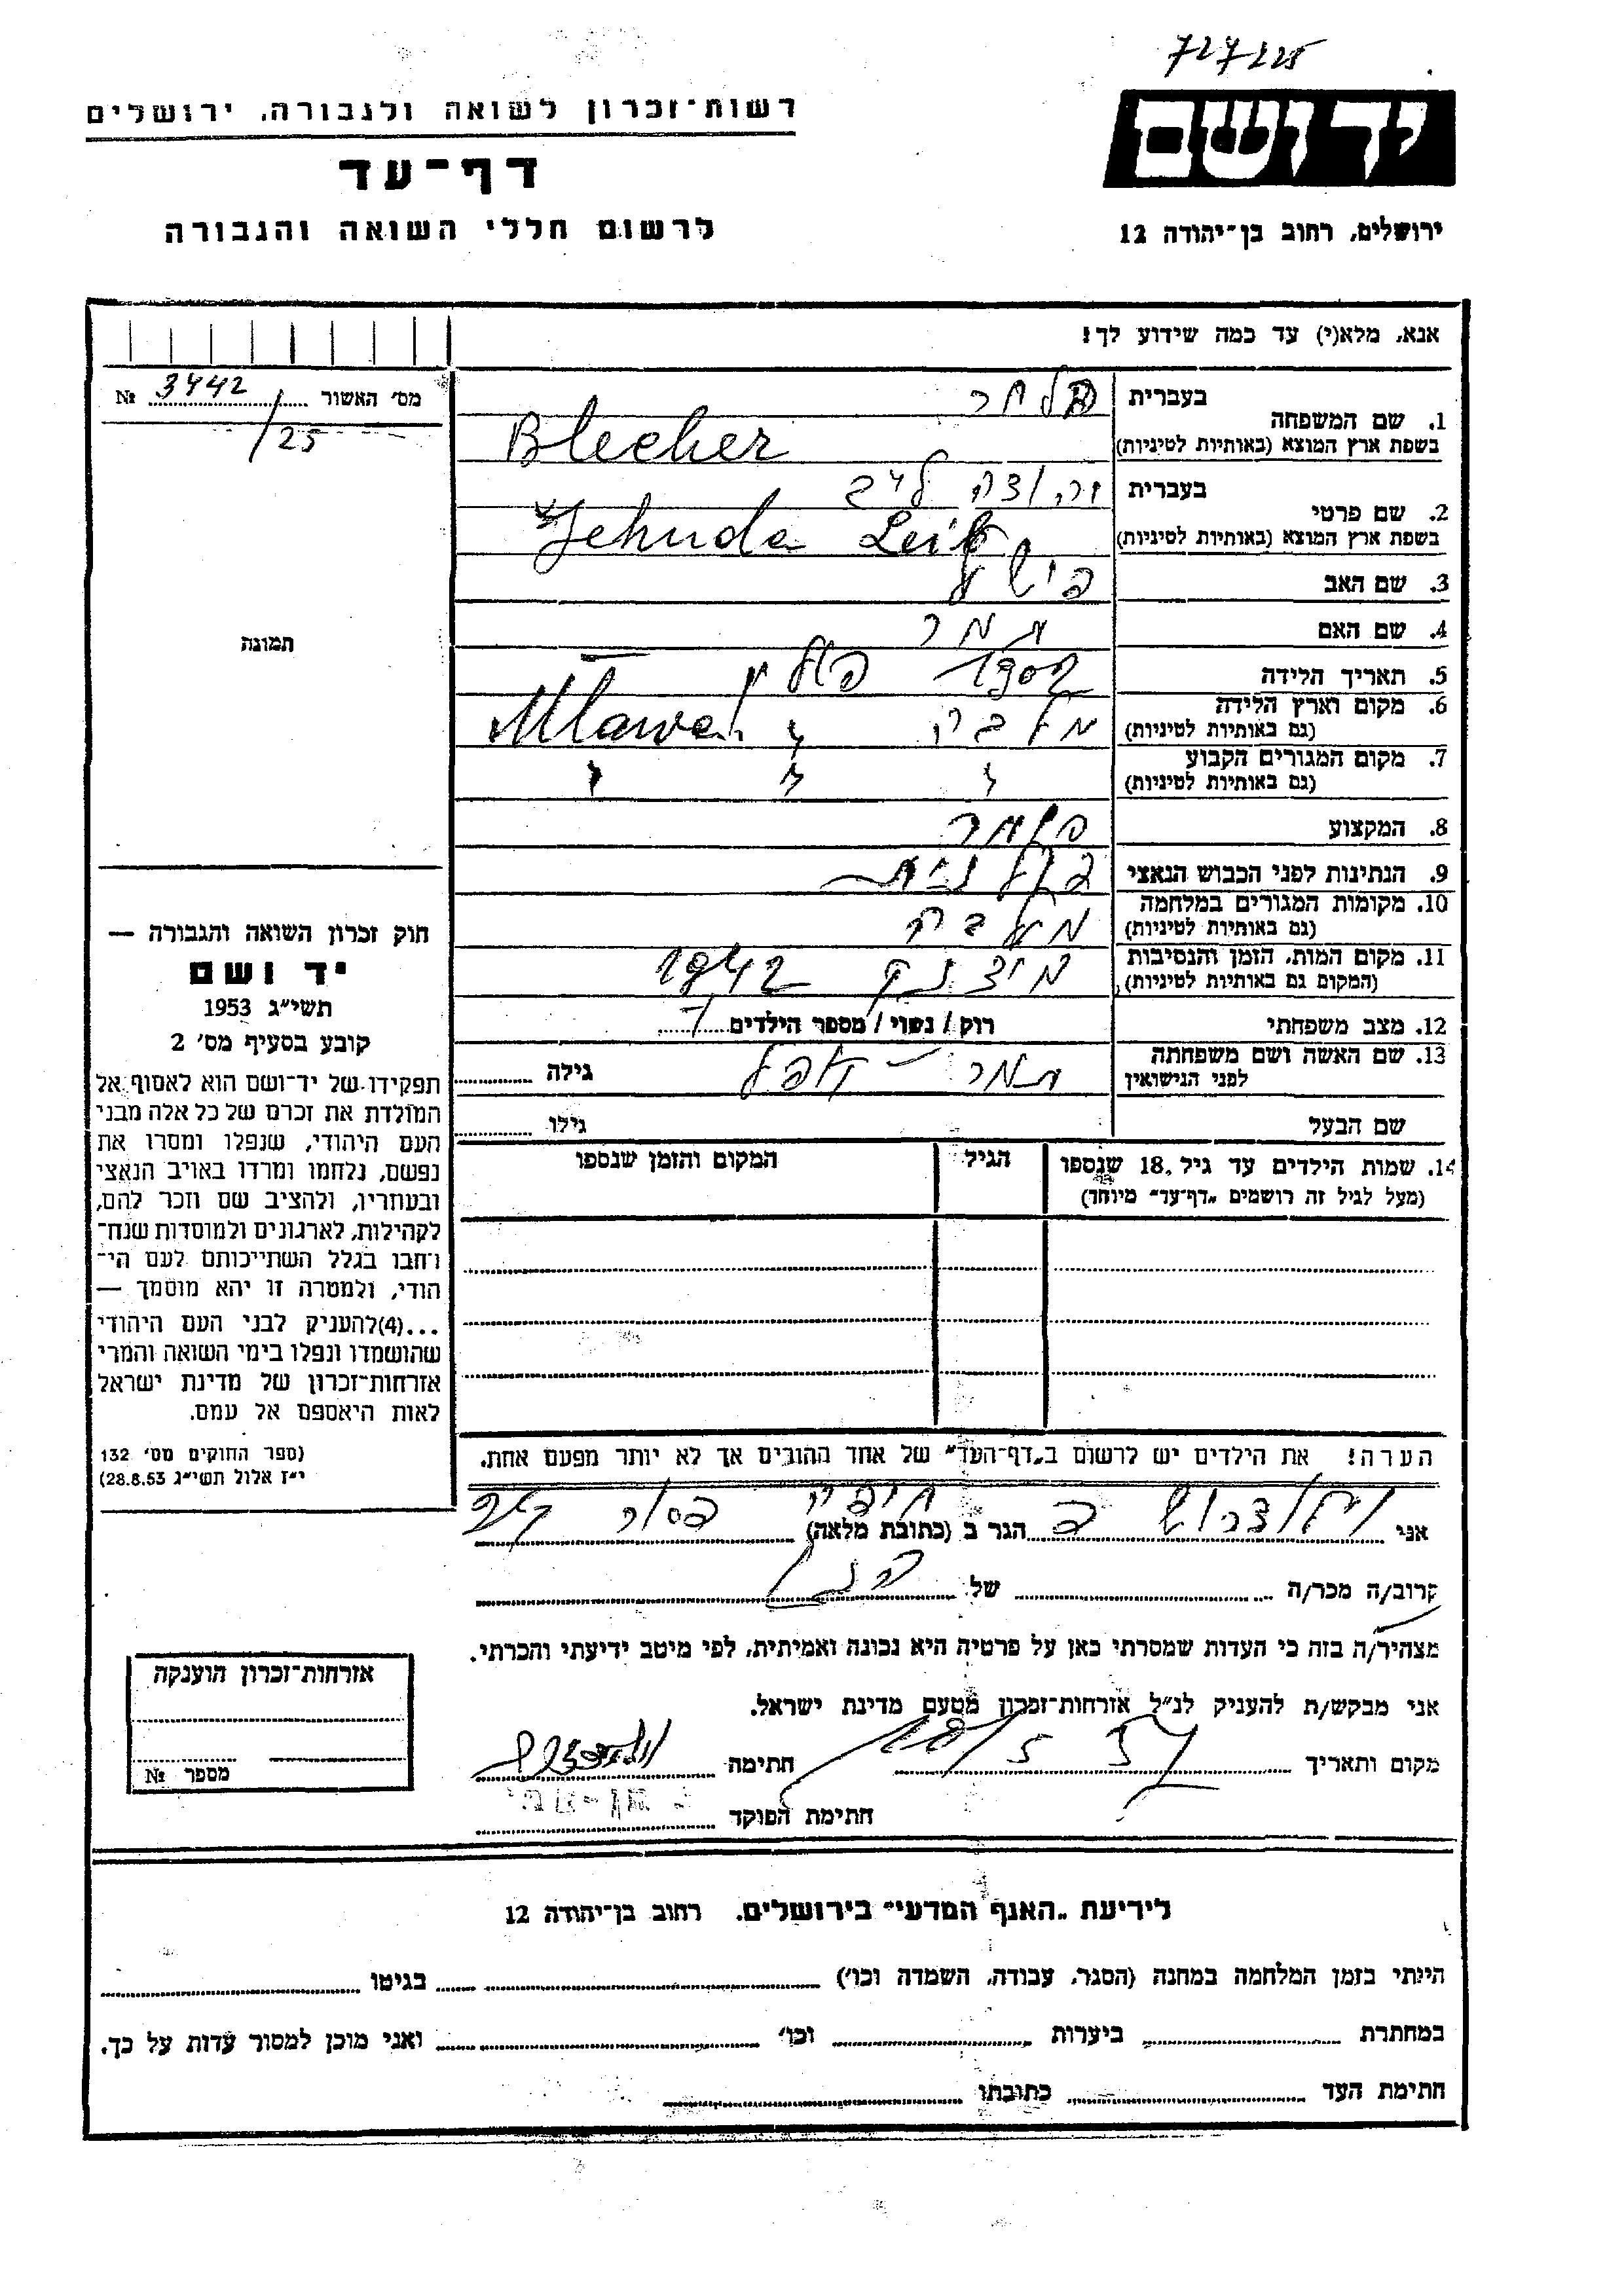 727225
רשות־זכרון לשואה ולגבורה, ירושלים
יד ושם
דף־עד
לרשום חללי השואה והגבורה
ירושלים, רחוב בן־יהודה 12
אנא, מלא(י) עד כמה שידוע לך!
מס׳ האשור 3442 №
/25
1. שם המשפחה בעברית בלחר
בשפת ארץ המוצא (באותיות לטיניות) Blecher
2. שם פרטי בעברית יהודה ליב
בשפת ארץ המוצא (באותיות לטיניות) Jehuda Leib
3. שם האב
4. שם האם תמר
5. תאריך הלידה 1902 פולין
6. מקום וארץ הלידה (גם באותיות לטיניות) מלבה Mlawa
7. מקום המגורים הקבוע (גם באותיות לטיניות)
8. המקצוע סוחר
9. הנתינות לפני הכבוש הנאצי פולנית
10. מקומות המגורים במלחמה (גם באותיות לטיניות) מלבה
11. מקום המות, הזמן והנסיבות (המקום גם באותיות לטיניות) 1942
12. מצב משפחתי רוק / נשוי / מספר הילדים
13. שם האשה ושם משפחתה לפני הנישואין תמר גילה
שם הבעל גילו
14. שמות הילדים עד גיל 18, שנספו (מעל לגיל זה רושמים „דף־עד״ מיוחד)
הגיל
המקום והזמן שנספו
תמונה
חוק זכרון השואה והגבורה —
יד ושם
תשי״ג 1953
קובע בסעיף מס׳ 2
תפקידו של יד־ושם הוא לאסוף אל
המולדת את זכרם של כל אלה מבני
העם היהודי, שנפלו ומסרו את
נפשם, נלחמו ומרדו באויב הנאצי
ובעוזריו, ולהציב שם וזכר להם,
לקהילות, לארגונים ולמוסדות שנח־
רחבו בגלל השתייכותם לעם הי־
הודי, ולמטרה זו יהא מוסמך —
...(4)להעניק לבני העם היהודי
שהושמדו ונפלו בימי השואה והמרי
אזרחות־זכרון של מדינת ישראל
לאות היאספם אל עמם.
(ספר החוקים מס׳ 132
י״ז אלול תשי״ג 28.8.53)
הערה! את הילדים יש לרשום ב„דף־העד״ של אחד ההורים אך לא יותר מפעם אחת.
אני הגר ב (כתובת מלאה) חיפה
קרוב/ה מכר/ה של
מצהיר/ה בזה כי העדות שמסרתי כאן על פרטיה היא נכונה ואמיתית, לפי מיטב ידיעתי והכרתי.
אני מבקש/ת להעניק לנ״ל אזרחות־זכרון מטעם מדינת ישראל.
מקום ותאריך חתימה
חתימת הפוקד
אזרחות־זכרון הוענקה
מספר №
לידיעת „האגף המדעי״ בירושלים, רחוב בן־יהודה 12
הייתי בזמן המלחמה במחנה (הסגר, עבודה, השמדה וכו׳) בגיטו
במחתרת ביערות וכו׳ ואני מוכן למסור עדות על כך.
חתימת העד כתובתו